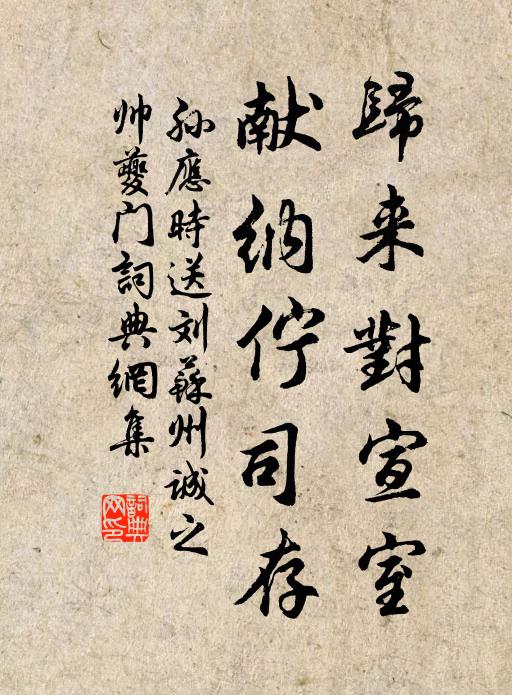 歸来對宣室
献纳佇司存
孙應時送刘蘇州诚之
帅夔门詞典網集
詞典网印